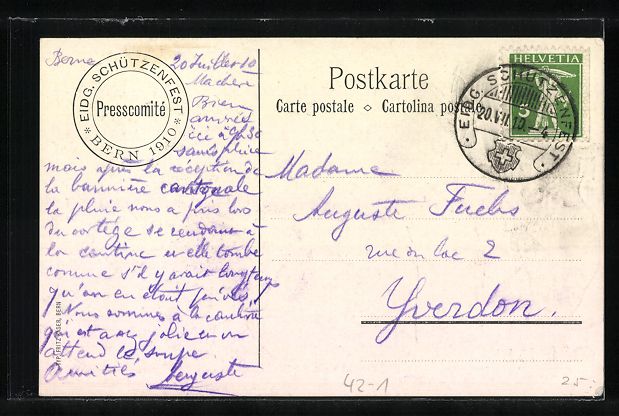 Berne 20 Juillet 10
EIDG. SCHÜTZENFEST
Presscomité
* BERN 1910 *
Ma chère
Bien
arrivés
ici à
sans pluie
mais après la réception de
la bannière cantonale
la pluie nous a pris lors
du cortège se rendant à
la cantine et elle tombe
comme s'il y avait longtemps
qu'on en était privés.
Nous sommes à la cantine
qui est assez jolie et on
attend le soupe
Amitiés Auguste
FRITZ
BERN
Postkarte
Carte postale ◇ Cartolina postale
HELVETIA
5
EIDG. SCHÜTZENFEST
20.VII.10.
Madame
Auguste Fuchs
rue du lac 2
Yverdon.
42-1
25.-